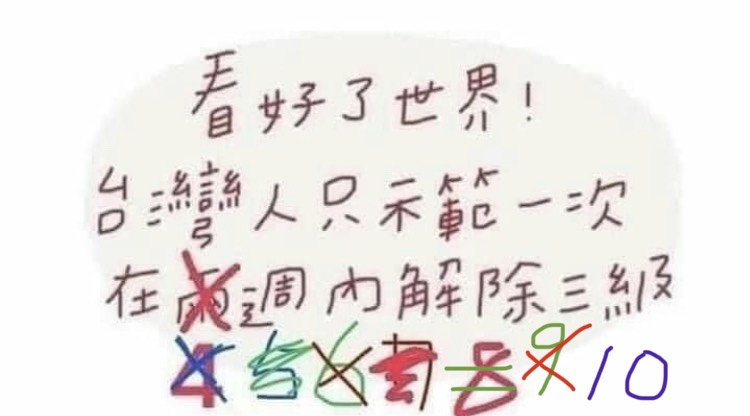 看好了世界!
台灣人只示範一次
在兩週內解除三級
4 5 6 7 8 9 10